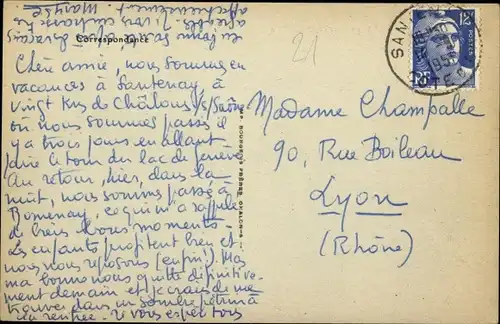 Correspondance
21
12F
POSTES
RF
SAN
Chère amie, nous sommes en
vacances à Santenay, à
vingt kms de Châlons s/Saône
où nous sommes passés il
y a trois jours en allant
faire le tour du lac de Genève
Au retour, hier, dans la
nuit, nous sommes passés à
Romenay, ce qui m'a rappelé
de biens bons moments.
Les enfants profitent bien et
nous nous reposons (enfin!). Mais
ma bonne nous quitte définitive-
ment demain et je crains de me
trouver dans un sombre pétrin à
la rentrée. Si vous espérions
en forme
affectueusement
BOURGEOIS FRÈRES, CHALON-S-S
Madame Champalle
90, Rue Boileau
Lyon
(Rhône)